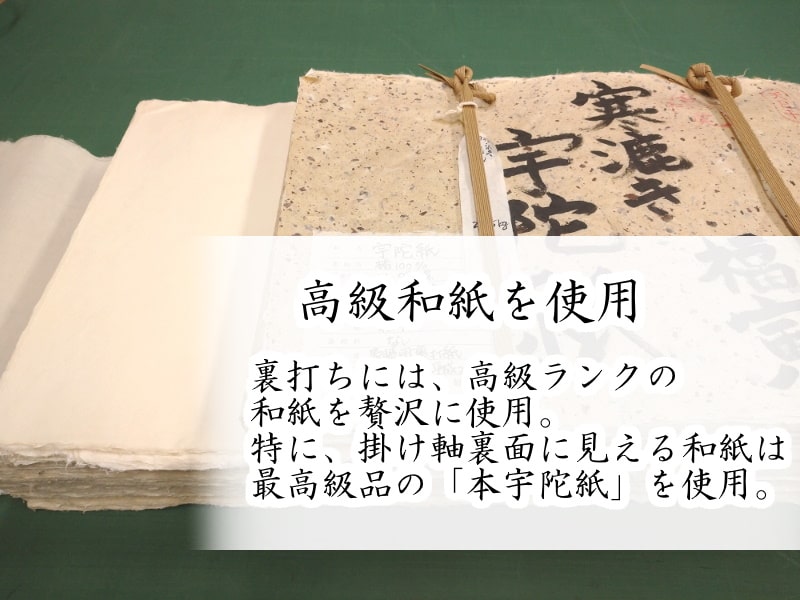 寒漉き
宇陀紙
福寅
宇陀紙
高級和紙を使用
裏打ちには、高級ランクの
和紙を贅沢に使用。
特に、掛け軸裏面に見える和紙は
最高級品の「本宇陀紙」を使用。